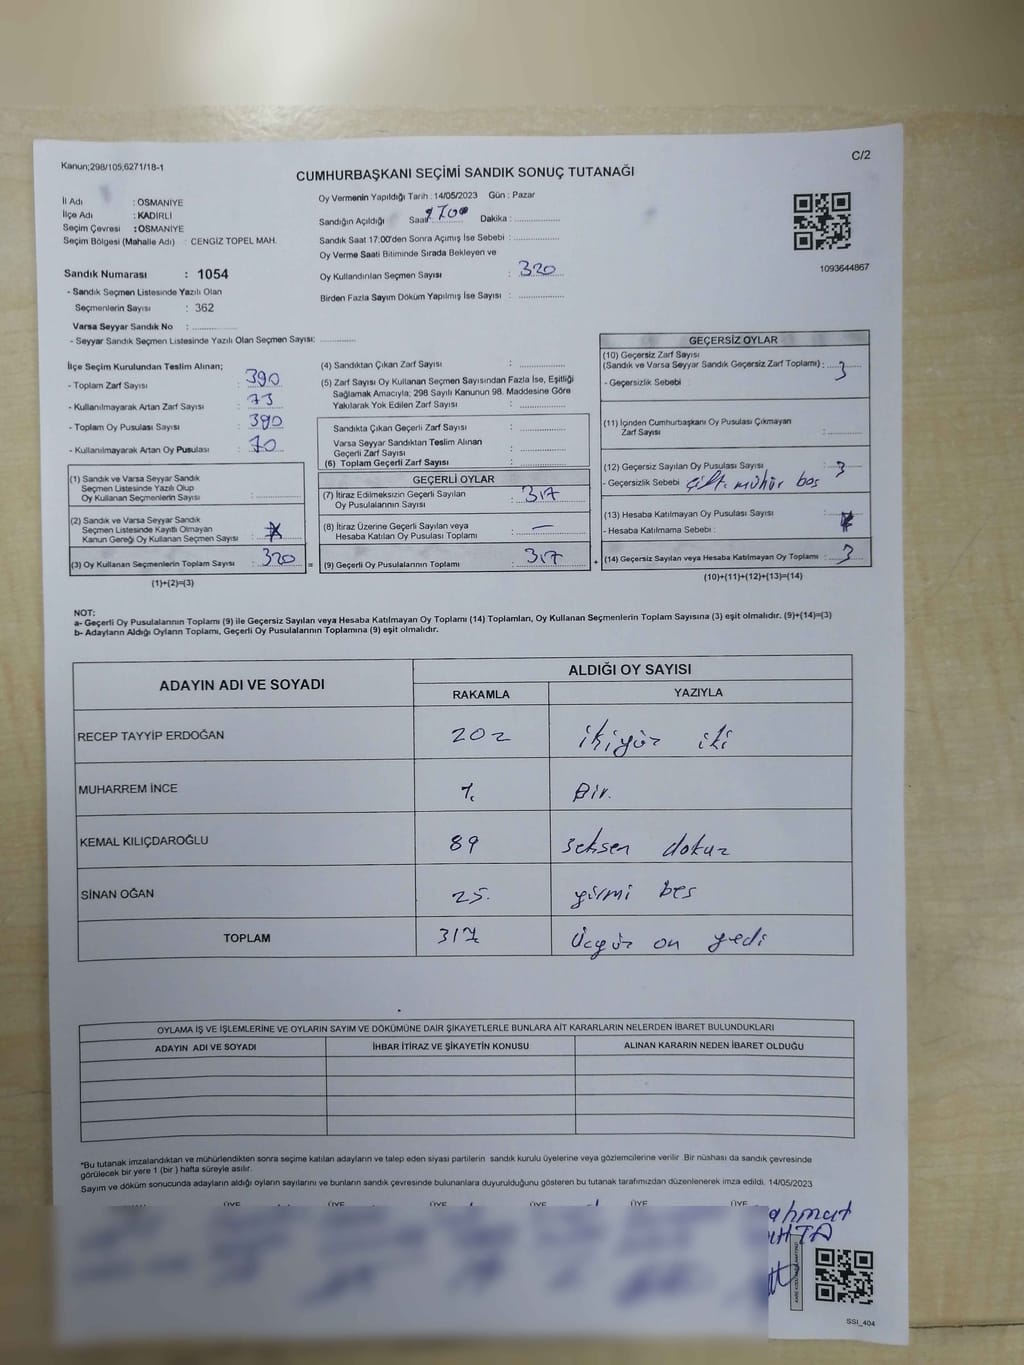 Kanun;298/105,6271/18-1
C/2
CUMHURBAŞKANI SEÇİMİ SANDIK SONUÇ TUTANAĞI
İl Adı : OSMANİYE
İlçe Adı : KADİRLİ
Seçim Çevresi : OSMANİYE
Seçim Bölgesi (Mahalle Adı) : CENGİZ TOPEL MAH.
Sandık Numarası : 1054
- Sandık Seçmen Listesinde Yazılı Olan
Seçmenlerin Sayısı : 362
Varsa Seyyar Sandık No : ..............
- Seyyar Sandık Seçmen Listesinde Yazılı Olan Seçmen Sayısı: ............
Oy Vermenin Yapıldığı Tarih : 14/05/2023 Gün : Pazar
Sandığın Açıldığı Saat: 1700 Dakika : ..............
Sandık Saat 17:00'den Sonra Açımış İse Sebebi : ..............
Oy Verme Saati Bitiminde Sırada Bekleyen ve
Oy Kullandırılan Seçmen Sayısı : 320
Birden Fazla Sayım Döküm Yapılmış İse Sayısı : ..............
1093644867
İlçe Seçim Kurulundan Teslim Alınan;
- Toplam Zarf Sayısı : 390
- Kullanılmayarak Artan Zarf Sayısı : 73
- Toplam Oy Pusulası Sayısı : 390
- Kullanılmayarak Artan Oy Pusulası : 70
(1) Sandık ve Varsa Seyyar Sandık
Seçmen Listesinde Yazılı Olup
Oy Kullanan Seçmenlerin Sayısı : ..............
(2) Sandık ve Varsa Seyyar Sandık
Seçmen Listesinde Kayıtlı Olmayan
Kanun Gereği Oy Kullanan Seçmen Sayısı :
(3) Oy Kullanan Seçmenlerin Toplam Sayısı : 320
(1)+(2)=(3)
(4) Sandıktan Çıkan Zarf Sayısı : ..............
(5) Zarf Sayısı Oy Kullanan Seçmen Sayısından Fazla İse, Eşitliği
Sağlamak Amacıyla; 298 Sayılı Kanunun 98. Maddesine Göre
Yakılarak Yok Edilen Zarf Sayısı : ..............
Sandıkta Çıkan Geçerli Zarf Sayısı : ..............
Varsa Seyyar Sandıktan Teslim Alınan
Geçerli Zarf Sayısı : ..............
(6) Toplam Geçerli Zarf Sayısı : ..............
GEÇERLİ OYLAR
(7) İtiraz Edilmeksizin Geçerli Sayılan
Oy Pusulalarının Sayısı : 317
(8) İtiraz Üzerine Geçerli Sayılan veya
Hesaba Katılan Oy Pusulası Toplamı : —
(9) Geçerli Oy Pusulalarının Toplamı : 317
GEÇERSİZ OYLAR
(10) Geçersiz Zarf Sayısı
(Sandık ve Varsa Seyyar Sandık Geçersiz Zarf Toplamı) : 3
- Geçersizlik Sebebi
(11) İçinden Cumhurbaşkanı Oy Pusulası Çıkmayan
Zarf Sayısı : ..............
(12) Geçersiz Sayılan Oy Pusulası Sayısı : 3
- Geçersizlik Sebebi çift mühür bas
(13) Hesaba Katılmayan Oy Pusulası Sayısı :
- Hesaba Katılmama Sebebi :
(14) Geçersiz Sayılan veya Hesaba Katılmayan Oy Toplamı : 3
(10)+(11)+(12)+(13)=(14)
NOT:
a- Geçerli Oy Pusulalarının Toplamı (9) ile Geçersiz Sayılan veya Hesaba Katılmayan Oy Toplamı (14) Toplamları, Oy Kullanan Seçmenlerin Toplam Sayısına (3) eşit olmalıdır. (9)+(14)=(3)
b- Adayların Aldığı Oyların Toplamı, Geçerli Oy Pusulalarının Toplamına (9) eşit olmalıdır.
ADAYIN ADI VE SOYADI
ALDIĞI OY SAYISI
RAKAMLA YAZIYLA
RECEP TAYYİP ERDOĞAN 202 ikiyüz iki
MUHARREM İNCE 1 Bir.
KEMAL KILIÇDAROĞLU 89 seksen dokuz
SİNAN OĞAN 25. yirmi beş
TOPLAM 317 Üçyüz on yedi
OYLAMA İŞ VE İŞLEMLERİNE VE OYLARIN SAYIM VE DÖKÜMÜNE DAİR ŞİKAYETLERLE BUNLARA AİT KARARLARIN NELERDEN İBARET BULUNDUKLARI
ADAYIN ADI VE SOYADI İHBAR İTİRAZ VE ŞİKAYETİN KONUSU ALINAN KARARIN NEDEN İBARET OLDUĞU
"Bu tutanak imzalandıktan ve mühürlendikten sonra seçime katılan adayların ve talep eden siyasi partilerin sandık kurulu üyelerine veya gözlemcilerine verilir .Bir nüshası da sandık çevresinde
görülecek bir yere 1 (bir ) hafta süreyle asılır.
Sayım ve döküm sonucunda adayların aldığı oyların sayılarını ve bunların sandık çevresinde bulunanlara duyurulduğunu gösteren bu tutanak tarafımızdan düzenlenerek imza edildi. 14/05/2023
ÜYE ÜYE ÜYE ÜYE ÜYE ÜYE
SSI_404